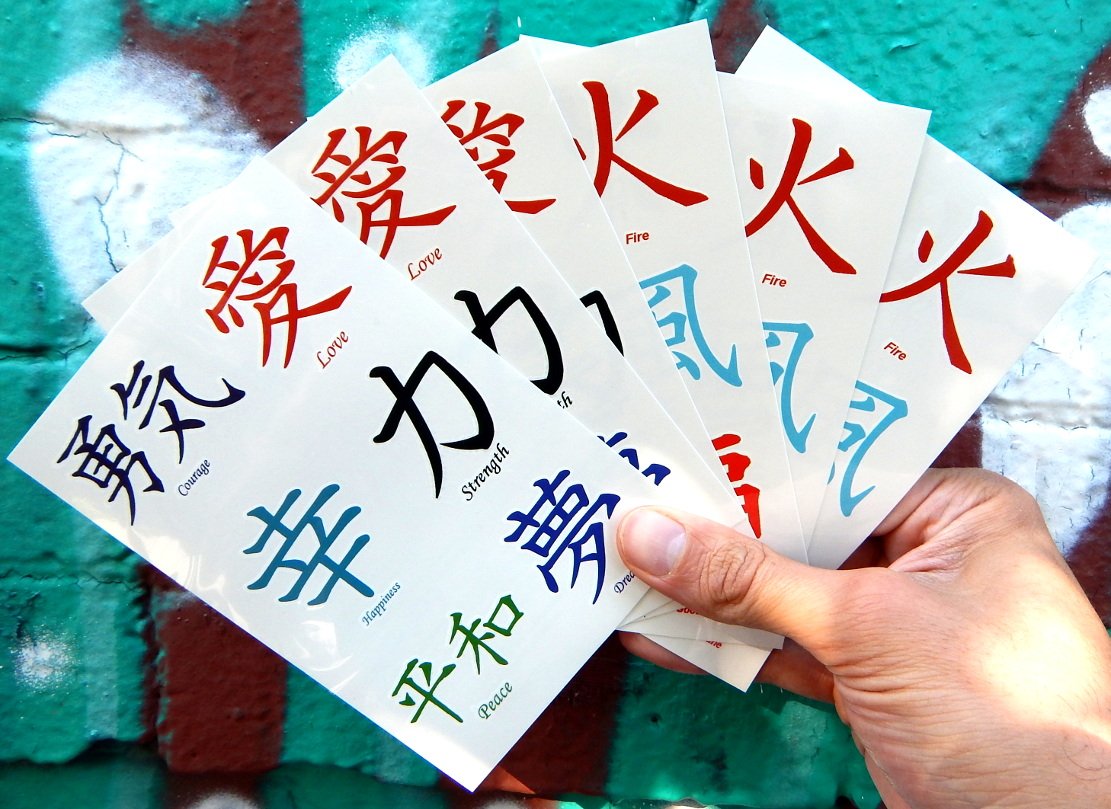 愛
Love
勇気
Courage
力
Strength
幸
Happiness
夢
平和
Peace
愛
Love
力
愛
火
Fire
風
火
Fire
風
火
Fire
風